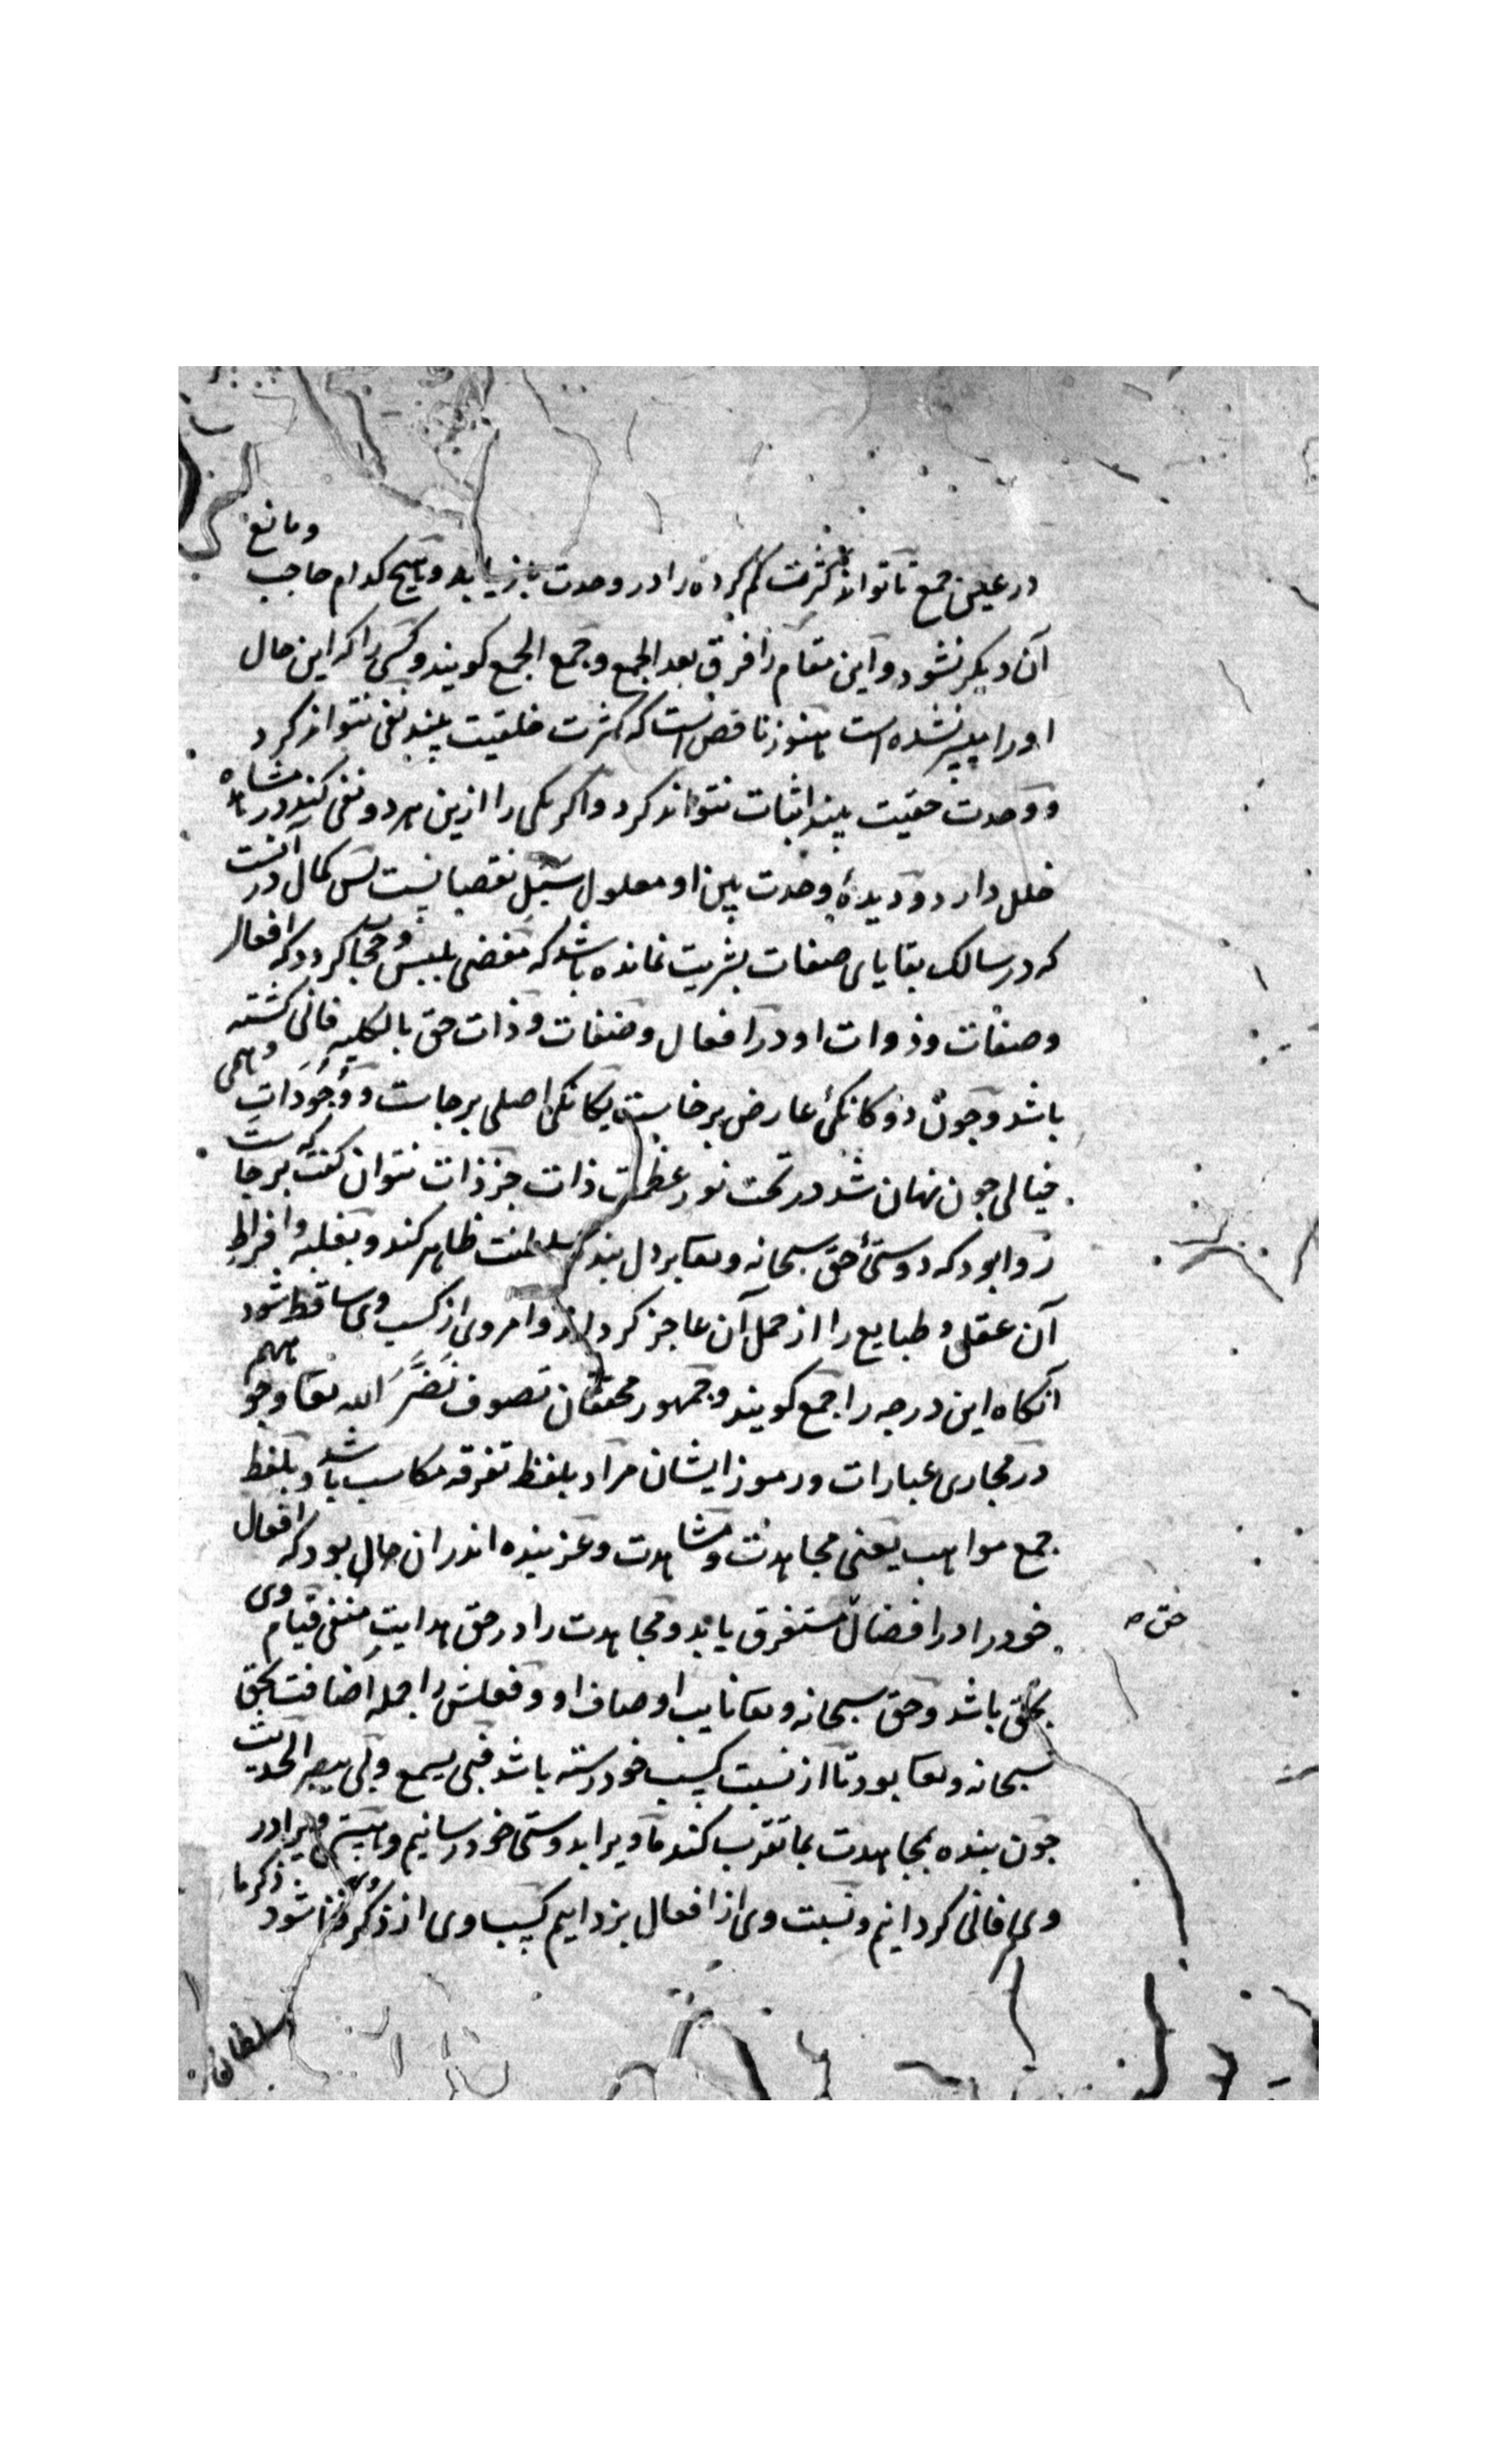 در عین جمع تا تواند کثرت گم کرده را در وحدت بازیابد و هیچ کدام حاجب و مانع
آن دیگر نشود و این مقام را فرق بعد الجمع و جمع الجمع کویند و کسی را که این حال
او را میسر نشده است هنوز ناقص است که کثرت خلقیت بیند نفی نتواند کرد
و وحدت حقیت بیند اثبات نتواند کرد و اکر یکی را ازین هر دو نفی کند در مشاهده
خلل دارد و دیدهٔ وحدت بین او معلول سبل نقصانیست پس کمال در آنست
که در سالک بقایای صفات بشریت نمانده باشد که مفضی بلبس و حجاب کردد که افعال
و صفات و ذوات او در افعال و صفات و ذات حق بالکلیه فانی کشته
باشد و چون دوکانکئ عارض برخاست یکانکی اصلی برجاست و وجودات وهمی
خیالی چون نهان شد در تحت نور عظمت ذات جز ذات نتوان کفت که برجاست
روا بود که دوستئ حق سبحانه وتعا بر دل بنده سلطنت ظاهر کند و بغلبه و افراط
آن عقل و طبایع را از حمل آن عاجز کرداند و امر وی از کسب وی ساقط شود
آنکاه این درجه را جمع کویند و جمهور محققان تصوف نَضَّرَ الله تعا وجوههم
در مجاری عبارات و رموز ایشان مراد بلفظ تفرقه مکاسب باشد و بلفظ
جمع مواهب یعنی مجاهدت و مشاهدت و عز بنده اندر ان حال بود که افعال
خود را در افضال مستغرق یابد و مجاهدت را در حق هدایت منفی قیام وی
حق صہ
بحق باشد و حق سبحانه وتعا نایب اوصاف او و فعلش را جمله اضافت بحق
سبحانه وتعا بود تا از نسبت کسب خود رسته باشد فبی یسمع وبی یبصر الحدیث
چون بنده بمجاهدت بما تقرب کند ما ویرا بدوستی خود رسانیم و هستی ویرا در
وی فانی کردانیم و نسبت وی از افعال بزداییم کسب وی از ذکر وی فنا شود ذکر ما
سلطان